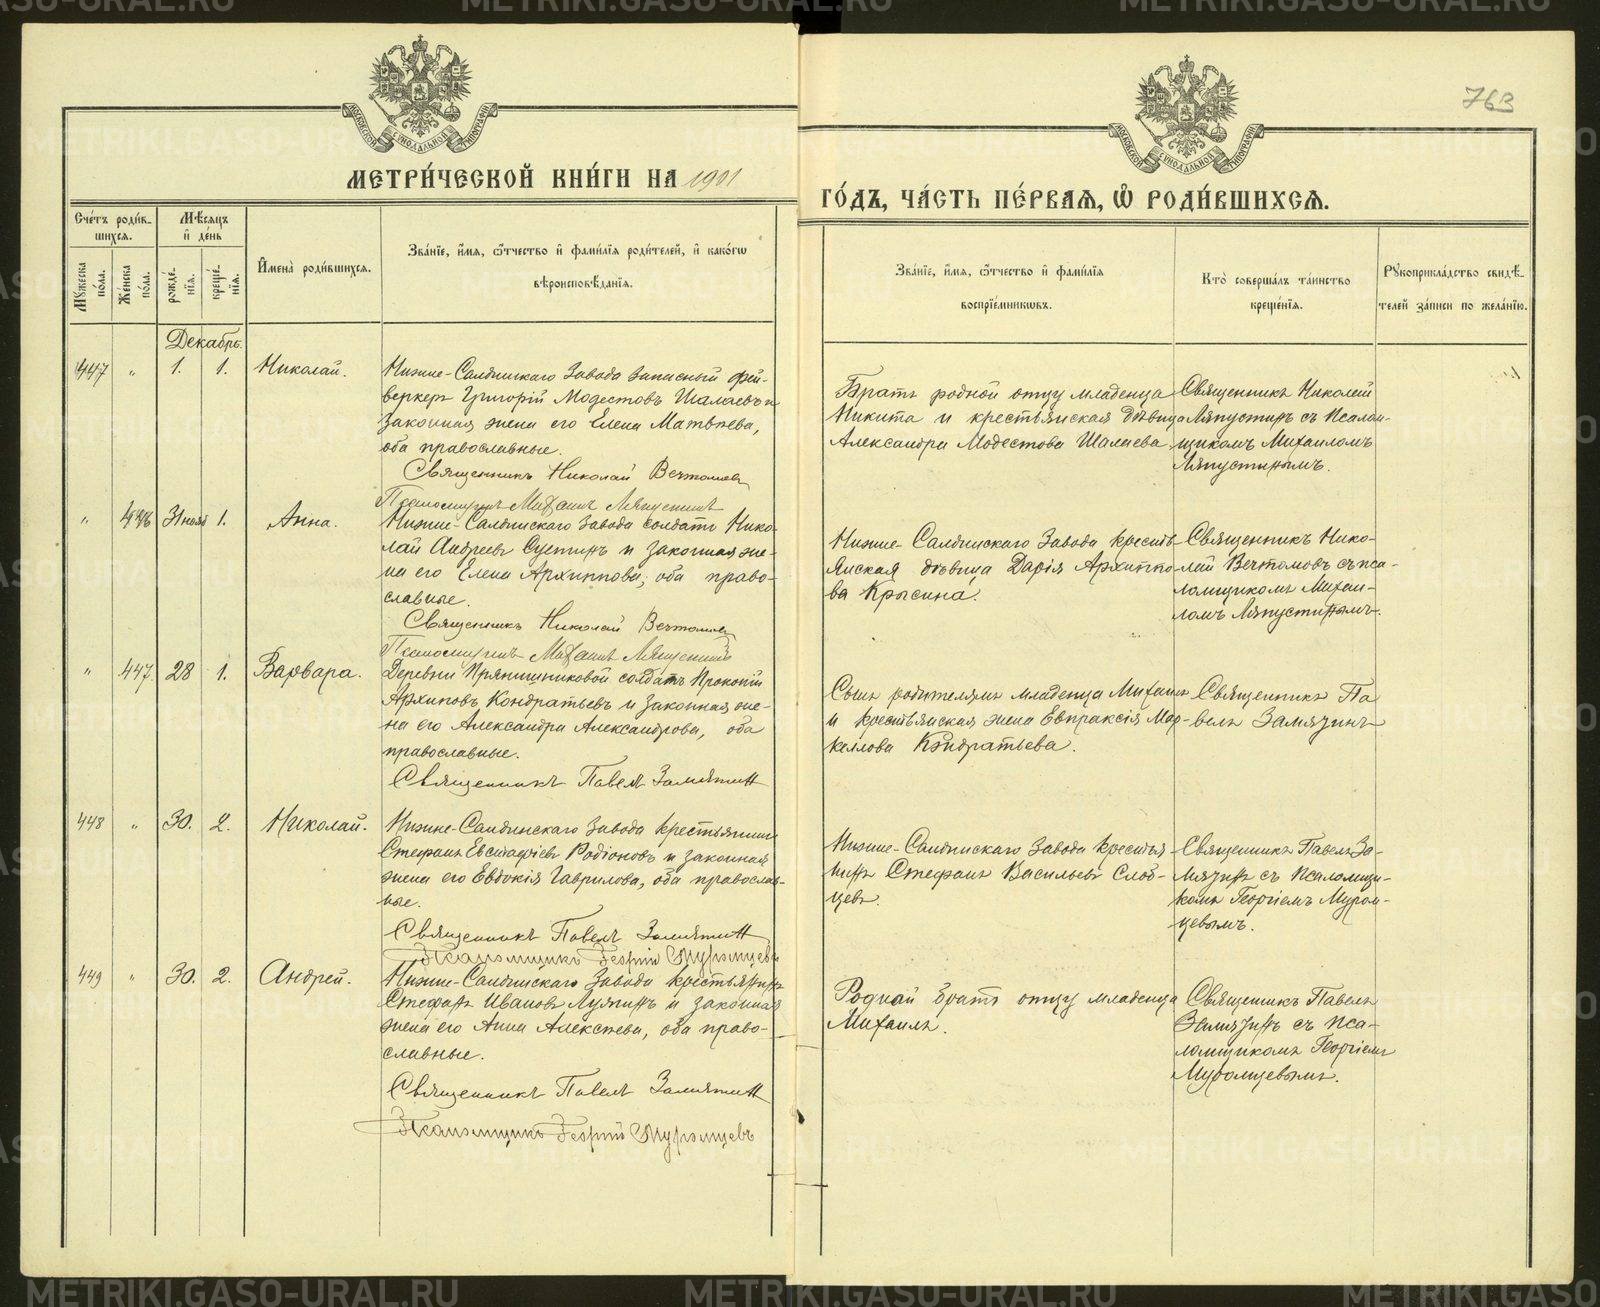 METRIKI.GASO-URAL.RU
763
МЕТРИ́ЧЕСКОЙ КНИ́ГИ НА 1901
ГО́ДЪ, ЧА́СТЬ ПЕ́РВАЯ, Ѡ҆ РОДИ́ВШИХСЯ.
Сче́тъ роди́вшихся.
Му́жеска по́ла.
Же́нска по́ла.
Мѣ́сяцъ и҆ де́нь
рожде́нїѧ.
креще́нїѧ.
И҆мена̀ роди́вшихся.
Зва́нїе, и҆́мя, ѻ҆́тчество и҆ фами́лїя роди́телей, и҆ како́гѡ
вѣроисповѣ́данїя.
Зва́нїе, и҆́мя, ѻ҆́тчество и҆ фами́лїя
воспрїе́мниковъ.
Кто̀ соверша́лъ та́инство
креще́нїя.
Рꙋкоприкла́дство свидѣ́-
телей за́писи по жела́нїю.
Декабрь.
447 „ 1. 1. Николай.
Нижне-Салдинскаго Завода запасный фей-
веркер Григорій Модестовъ Шалаевъ и
законная жена его Елена Матвѣева,
оба православные.
Священникъ Николай Вечтомов
Псаломщикъ Михаилъ Ляпустинъ
Братъ родной отцу младенца
Никита и крестьянская дѣвица
Александра Модестова Шалаева
Священникъ Николай
Ляпустинъ съ Псалом-
щикомъ Михаиломъ
Ляпустинымъ.
„ 446 31 нояб 1. Анна.
Нижне-Салдинскаго Завода солдатъ Нико-
лай Андреевъ Сустинъ и законная же-
на его Елена Архиппова, оба право-
славные.
Священникъ Николай Вечтомов
Псаломщикъ Михаилъ Ляпустинъ
Нижне-Салдинскаго Завода кресть-
янская дѣвица Дарія Архиппо-
ва Крысина.
Священникъ Нико-
лай Вечтомовъ съ пса-
ломщикомъ Михаи-
ломъ Ляпустинымъ.
„ 447 28 1. Варвара.
Деревни Прянишниковой солдатъ Прокопій
Архиповъ Кондратьевъ и законная же-
на его Александра Александрова, оба
православные.
Священникъ Павелъ Замятин
Сынъ родителямъ младенца Михаилъ
и крестьянская жена Евпраксія Мар-
келлова Кондратьева.
Священникъ Па
велъ Замятинъ
448 „ 30. 2. Николай.
Нижне-Салдинскаго Завода крестьянинъ
Стефанъ Евстафіевъ Родіоновъ и законная
жена его Евдокія Гаврилова, оба православ-
ные.
Священникъ Павелъ Замятин
Псаломщикъ Георгій Муромцевъ
Нижне-Салдинскаго Завода крестья
нинъ Стефанъ Васильевъ Слоб-
цевъ.
Священникъ Павелъ За-
мятинъ съ Псаломщи-
комъ Георгіемъ Муром-
цевымъ.
449 „ 30. 2. Андрей.
Нижне-Салдинскаго Завода крестьянинъ
Стефанъ Ивановъ Лупинъ и законная
жена его Анна Алексѣева, оба право-
славные.
Священникъ Павелъ Замятин
Псаломщикъ Георгій Муромцевъ
Родной братъ отцу младенца
Михаилъ.
Священникъ Павелъ
Замятинъ съ Пса-
ломщикомъ Георгіемъ
Муромцевымъ.